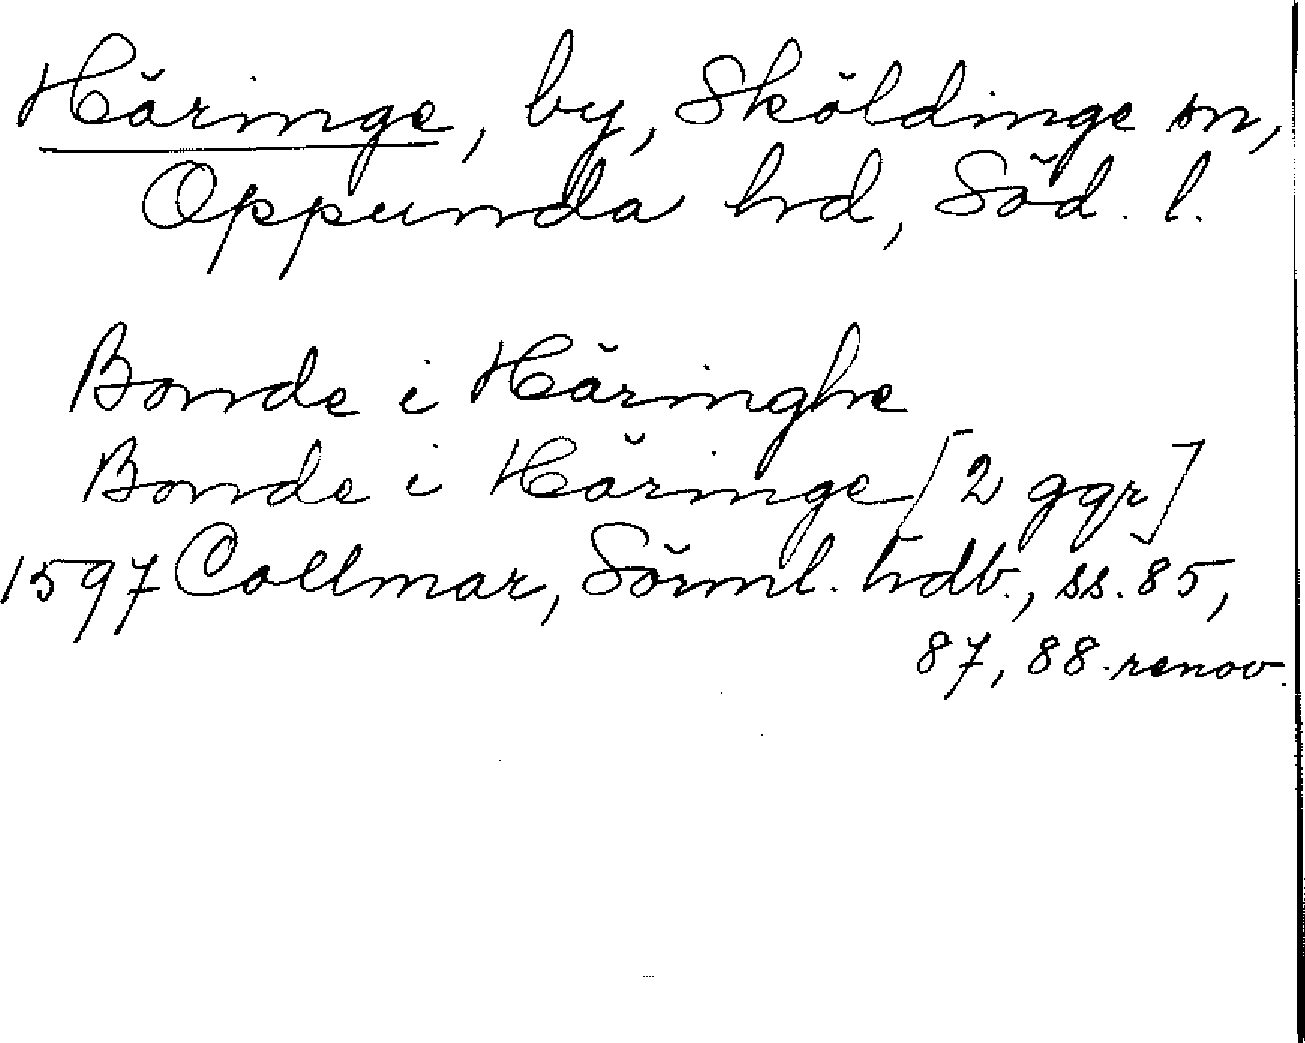 Häringe, by, Sköldinge sn,
Oppunda hd, Söd. l.
Bonde i Häringhe
Bonde i Häringe [2 ggr]
1597 Collmar, Sörml. hdb., ss. 85,
87, 88. renov.